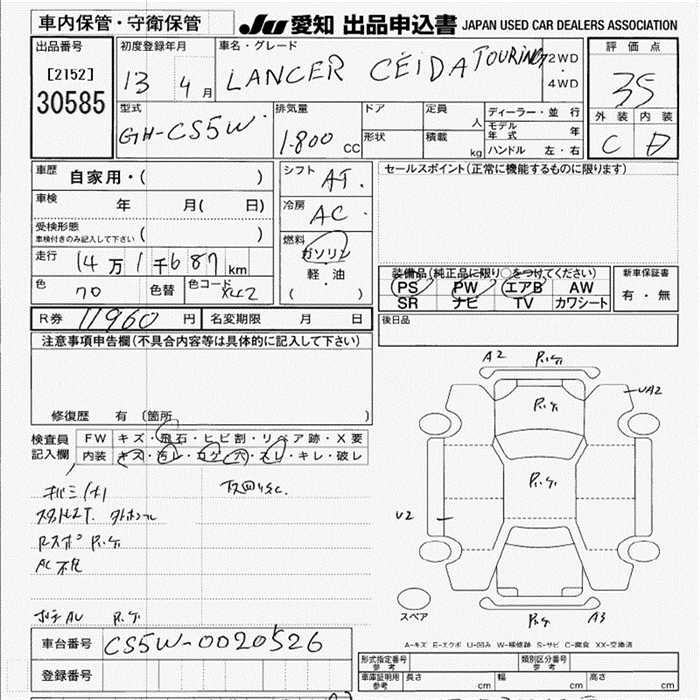 車内保管・守衛保管 JU 愛知 出品申込書 JAPAN USED CAR DEALERS ASSOCIATION
出品番号 初度登録年月 車名・グレード 評価点
[2152] 13 4月 LANCER CEIDA TOURING 2WD・4WD 35
30585 型式 排気量 ドア 定員 人 ディーラー・並行 外装 内装
GH-CS5W 1.800 CC 形状 積載 kg モデル年式 年 C D
ハンドル 左・右
車歴 自家用・( ) シフト AT. セールスポイント(正常に機能するものに限ります)
車検 年 月( 日) 冷房 AC.
受検形態 ( )
車検付きのみ記入して下さい
燃料 ガソリン
走行 14万1千687km 軽・油
装備品(純正品に限り○をつけてください) 新車保証書
色 70 色替 色コード X42 ( )
PS PW エアB AW 有・無
SR ナビ TV カワシート
R券 11960円 名変期限 月 日 後日品
注意事項申告欄(不具合内容等は具体的に記入して下さい)
A2 キ.ケ
キ.ケ UA2
修復歴 有 (箇所 )
検査員 FW キズ・飛石・ヒビ割・リペア跡・X要
記入欄 内装 キズ・汚レ・コゲ・穴・スレ・キレ・破レ
キ.ケ
U2
Rスポ キ.ケ
AC不良
スペア
キ.ケ A3
キ.ケ
A-キズ E-エクボ U-凹み W-補修跡 S-サビ C-腐食 XX-交換済
車台番号 CS5W-0020526
形式指定番号 参考 類別区分番号 参考
登録番号 車庫証明用 参考 長さ cm 幅 cm 高さ cm